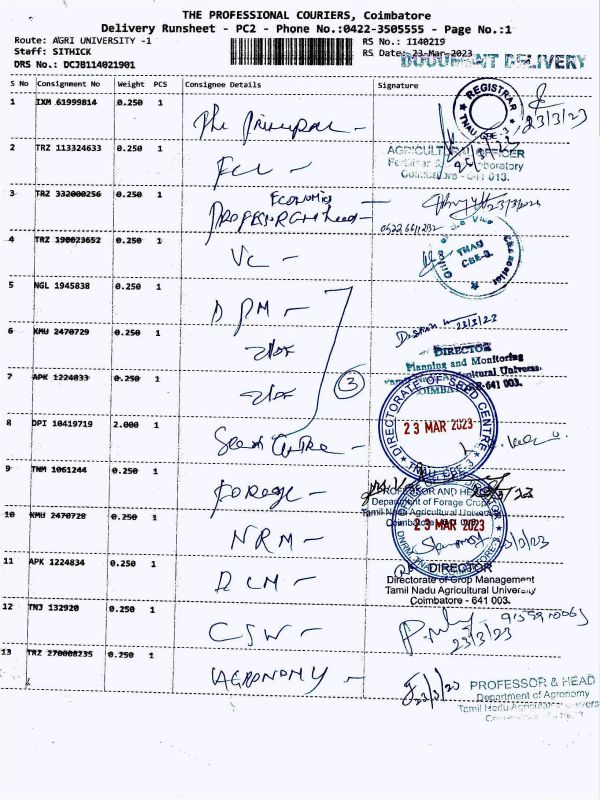 THE PROFESSIONAL COURIERS, Coimbatore
Delivery Runsheet - PC2 - Phone No.:0422-3505555 - Page No.:1
Route: AGRI UNIVERSITY -1
RS No.: 1140219
Staff: SITHICK
RS Date: 23-Mar-2023
DRS No.: DCJB114021901
DOCUMENT DELIVERY
S No Consignment No Weight PCS Consignee Details Signature
1 IXM 61999814 0.250 1
The Principal -
REGISTRAR
TNAU CBE-3
23/3/23
2 TRZ 113324633 0.250 1
FCL -
AGRICULTURAL OFFICER
Laboratory
Coimbatore - 641 013.
3 TRZ 332000256 0.250 1
ECONOMICS
PROFESSOR & Head -
23/3/2023
4 TRZ 190023652 0.250 1
VC -
TNAU
CBE-3.
5 NGL 1945838 0.250 1
DPM -
23/3/23
6 KMU 2470729 0.250 1
DIRECTOR
Planning and Monitoring
7 APK 1224833 0.250 1
3
641 003.
8 DPI 10419719 2.000 1
Seed Centre -
DIRECTORATE OF SEED CENTRE
23 MAR 2023
TNAU CBE-3
9 TNM 1061244 0.250 1
Forage -
PROFESSOR AND HEAD
Department of Forage Crops
Tamil Nadu Agricultural University
Coimbatore
10 KMU 2470728 0.250 1
NRM -
23 MAR 2023
23/3/23
11 APK 1224834 0.250 1
DCM -
DIRECTOR
Directorate of Crop Management
Tamil Nadu Agricultural University
Coimbatore - 641 003.
12 TNJ 132920 0.250 1
CSW -
23/3/23
13 TRZ 270008235 0.250 1
AGRONOMY -
23/3/23
PROFESSOR & HEAD
Department of Agronomy
Tamil Nadu Agricultural